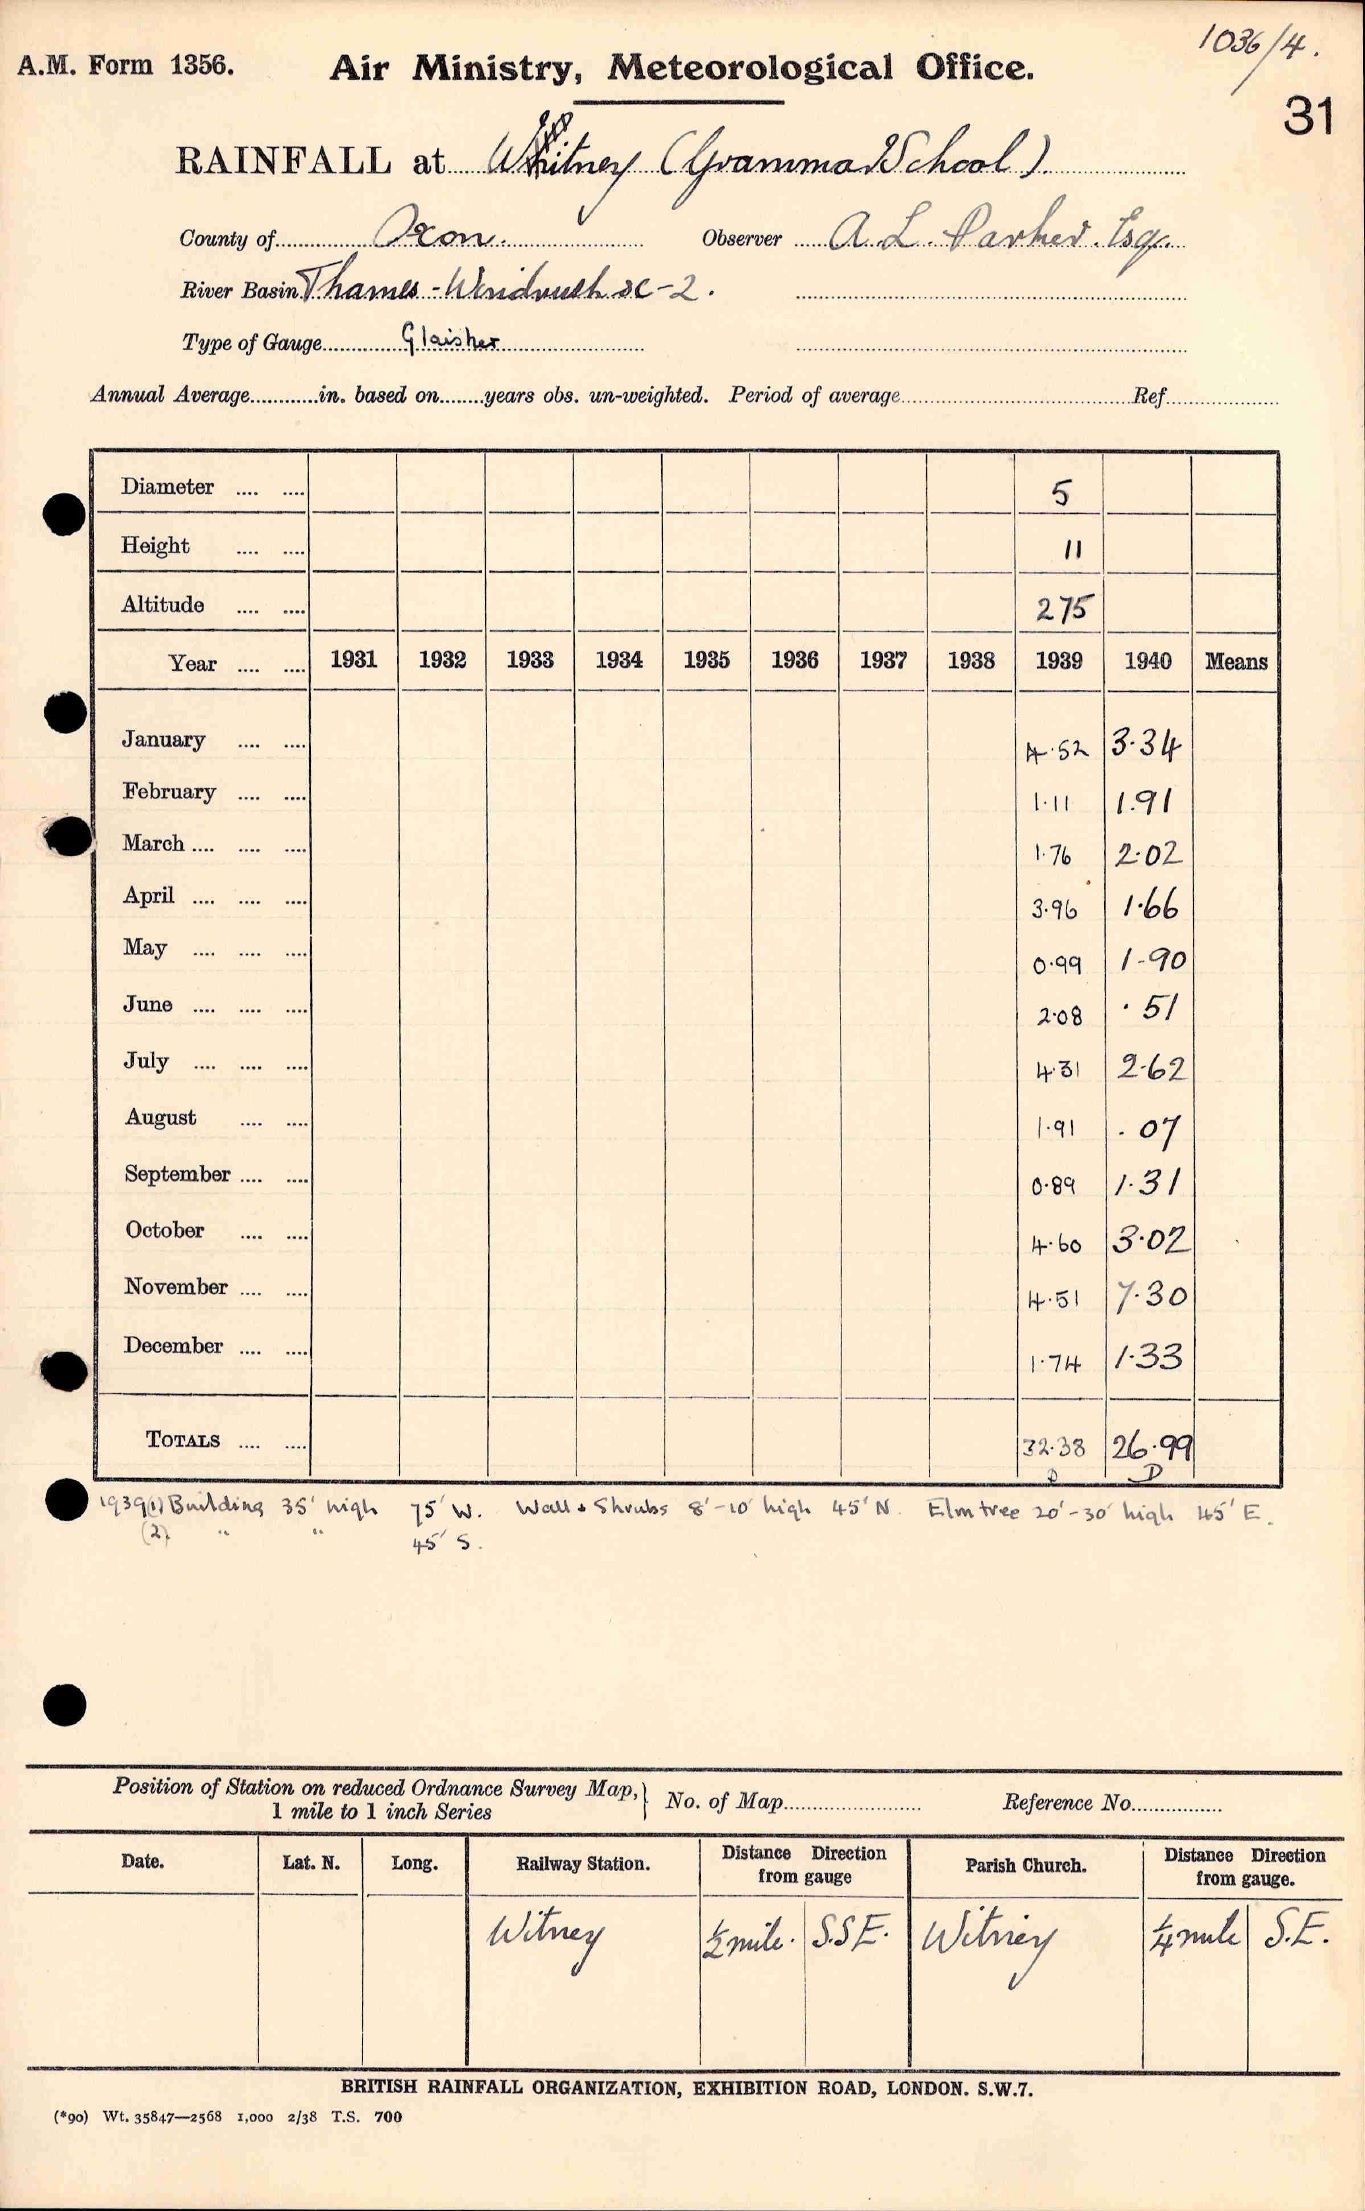 1036/4.
A.M. Form 1356. Air Ministry, Meteorological Office.
31
RAINFALL at Witney (Grammar School)
County of Oxon. Observer A. L. Parker. Esq.
River Basin Thames - Windrush 2C-2.
Type of Gauge Glaisher
Annual Average............in. based on........years obs. un-weighted. Period of average............Ref............
Diameter .... .... 5
Height .... .... 11
Altitude .... .... 275
Year .... .... 1931 1932 1933 1934 1935 1936 1937 1938 1939 1940 Means
January .... .... 4.52 3.34
February .... .... 1.11 1.91
March .... .... .... 1.76 2.02
April .... .... .... 3.96 1.66
May .... .... .... 0.99 1.90
June .... .... .... 2.08 .51
July .... .... .... 4.31 2.62
August .... .... 1.91 .07
September .... .... 0.89 1.31
October .... .... 4.60 3.02
November .... .... 4.51 7.30
December .... .... 1.74 1.33
TOTALS .... .... 32.38 26.99
D D
1939(1) Building 35' high 75' W. Wall + Shrubs 8'-10' high 45' N. Elm tree 20'-30' high 45' E.
(2) " " 45' S.
Position of Station on reduced Ordnance Survey Map, 1 mile to 1 inch Series } No. of Map............ Reference No............
Date. Lat. N. Long. Railway Station. Distance Direction from gauge Parish Church. Distance Direction from gauge.
Witney ½ mile. S.S.E. Witney ¼ mile S.E.
BRITISH RAINFALL ORGANIZATION, EXHIBITION ROAD, LONDON. S.W.7.
(*90) Wt. 35847—2568 1,000 2/38 T.S. 700